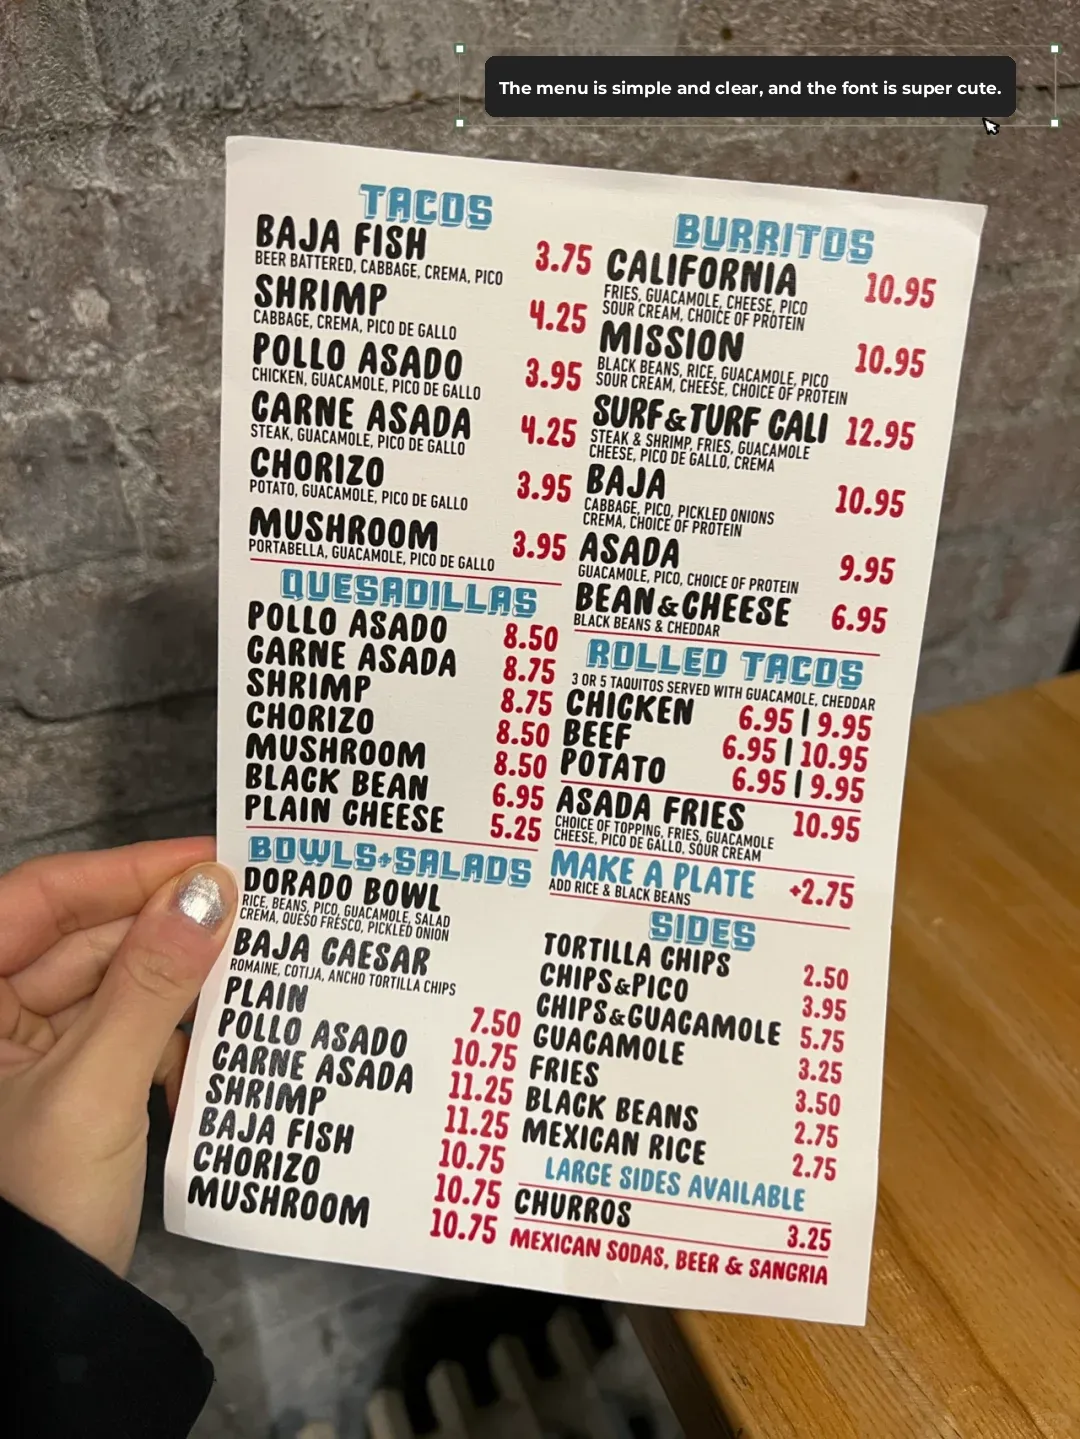 The menu is simple and clear, and the font is super cute.
TACOS
BAJA FISH 3.75
BEER BATTERED, CABBAGE, CREMA, PICO
SHRIMP 4.25
CABBAGE, CREMA, PICO DE GALLO
POLLO ASADO 3.95
CHICKEN, GUACAMOLE, PICO DE GALLO
CARNE ASADA 4.25
STEAK, GUACAMOLE, PICO DE GALLO
CHORIZO 3.95
POTATO, GUACAMOLE, PICO DE GALLO
MUSHROOM 3.95
PORTABELLA, GUACAMOLE, PICO DE GALLO
QUESADILLAS
POLLO ASADO 8.50
CARNE ASADA 8.75
SHRIMP 8.75
CHORIZO 8.50
MUSHROOM 8.50
BLACK BEAN 6.95
PLAIN CHEESE 5.25
BOWLS+SALADS
DORADO BOWL
RICE, BEANS, PICO, GUACAMOLE, SALAD
CREMA, QUESO FRESCO, PICKLED ONION
BAJA CAESAR
ROMAINE, COTIJA, ANCHO TORTILLA CHIPS
PLAIN 7.50
POLLO ASADO 10.75
CARNE ASADA 11.25
SHRIMP 11.25
BAJA FISH 10.75
CHORIZO 10.75
MUSHROOM 10.75
BURRITOS
CALIFORNIA 10.95
FRIES, GUACAMOLE, CHEESE, PICO
SOUR CREAM, CHOICE OF PROTEIN
MISSION 10.95
BLACK BEANS, RICE, GUACAMOLE, PICO
SOUR CREAM, CHEESE, CHOICE OF PROTEIN
SURF&TURF CALI 12.95
STEAK & SHRIMP, FRIES, GUACAMOLE
CHEESE, PICO DE GALLO, CREMA
BAJA 10.95
CABBAGE, PICO, PICKLED ONIONS
CREMA, CHOICE OF PROTEIN
ASADA 9.95
GUACAMOLE, PICO, CHOICE OF PROTEIN
BEAN&CHEESE 6.95
BLACK BEANS & CHEDDAR
ROLLED TACOS
3 OR 5 TAQUITOS SERVED WITH GUACAMOLE, CHEDDAR
CHICKEN 6.95 | 9.95
BEEF 6.95 | 10.95
POTATO 6.95 | 9.95
ASADA FRIES 10.95
CHOICE OF TOPPING, FRIES, GUACAMOLE
CHEESE, PICO DE GALLO, SOUR CREAM
MAKE A PLATE +2.75
ADD RICE & BLACK BEANS
SIDES
TORTILLA CHIPS 2.50
CHIPS&PICO 3.95
CHIPS&GUACAMOLE 5.75
GUACAMOLE 3.25
FRIES 3.50
BLACK BEANS 2.75
MEXICAN RICE 2.75
LARGE SIDES AVAILABLE
CHURROS 3.25
MEXICAN SODAS, BEER & SANGRIA